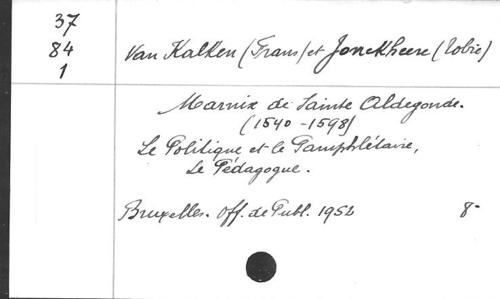 37
84
1
Van Kalken (Frans) et Jonckheere (Tobie)
Marnix de Sainte Aldegonde.
(1540-1598)
Le Politique et le Pamphlétaire,
Le Pédagogue.
Bruxelles. Off. de Publ. 1952 8-